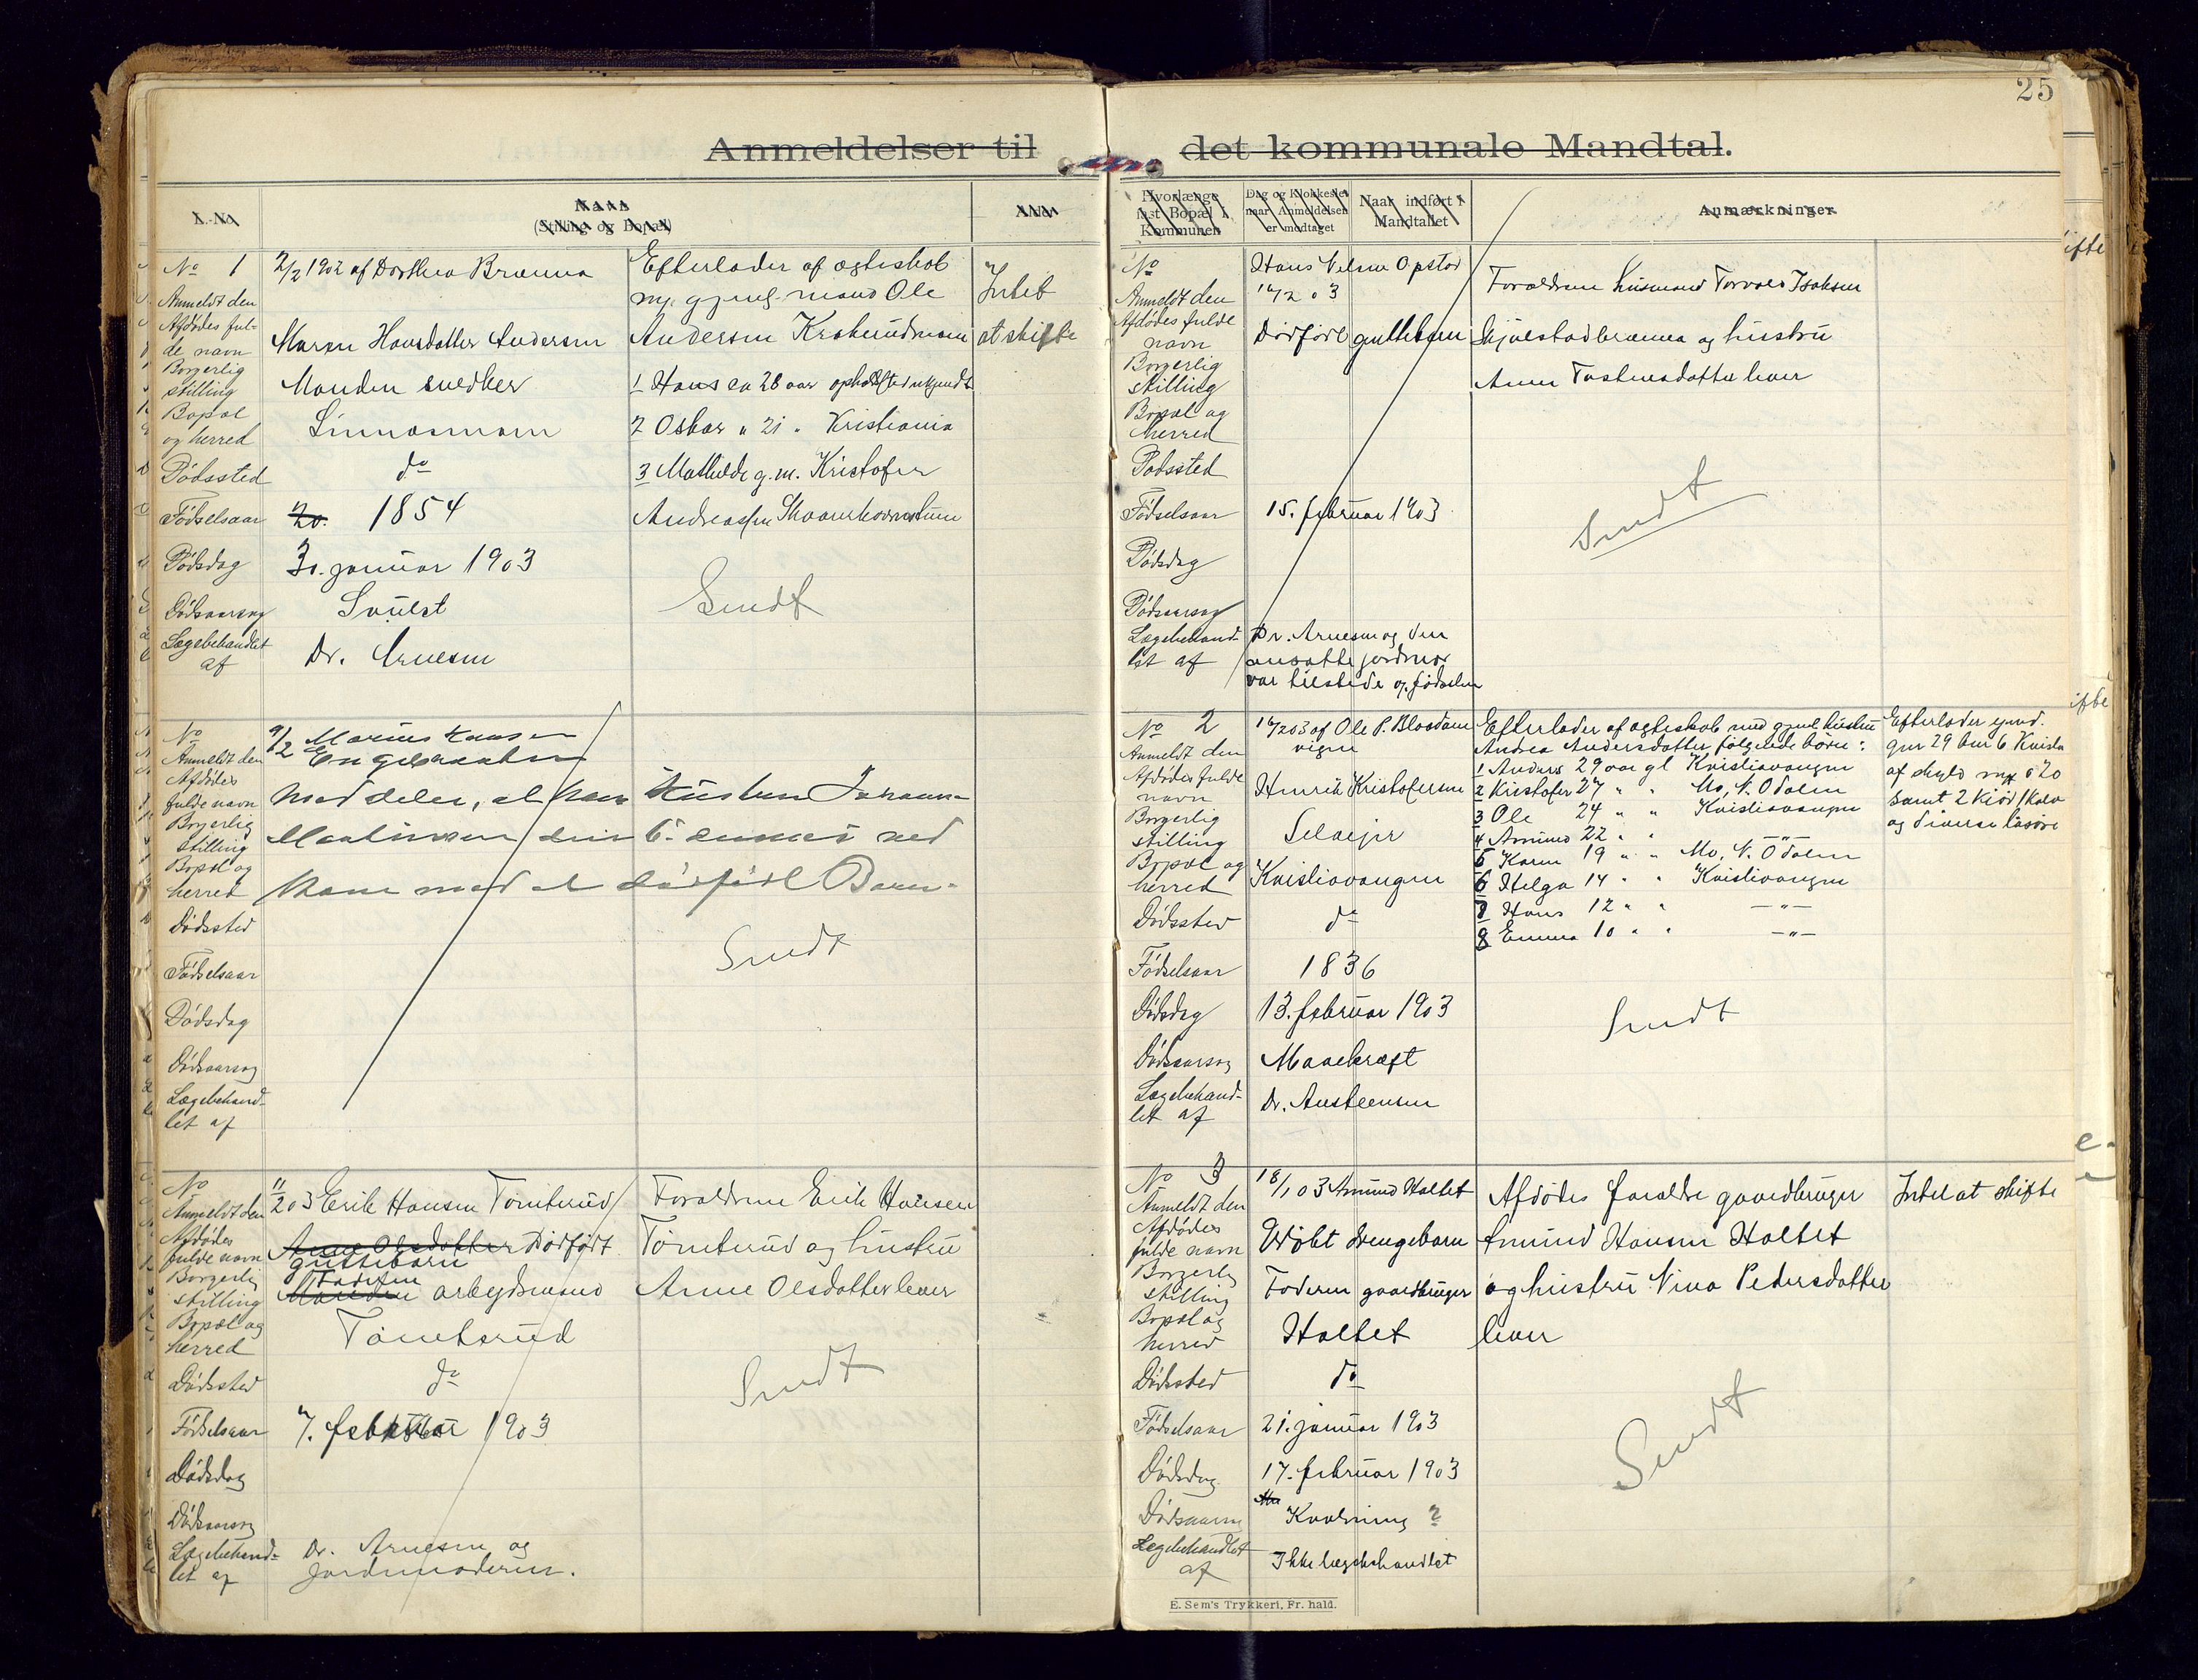 25
Anmeldelser til det kommunale Mandtal.
L.-No.
Navn
(Stilling og Bopæl)
Hvorlænge
fast Bopæl i
Kommunen
Dag og Klokkeslet
naar Anmeldelsen
er modtaget
Naar indført i
Mandtallet
Anmærkninger
No 1
2/2 1902 af Dorthea Brænna
Anmeldt den
Afdødes ful-
de navn
Maren Hansdatter Andersen
Borgerlig
stilling
Manden snedker
Bopæl
og herred
Dødssted
do
Fødselsaar
20. 1854
Dødsdag
30. januar 1903
Dødsaarsag
Svulst
Lægebehandlet
af
Dr. Arnesen
Efterlader af ægteskab
Ole
Andersen
1 Hans ca 28 aar
2 Oskar " 21 " Kristiania
3 Mathilde g.m. Kristofer
Sendt
Intet
at skifte
No
9/2 Marius Hansen
Anmeldt den
Afdødes
fulde navn
meddeler, at
Borgerlig
stilling
Bopæl og
herred
kom med et dødfødt Barn.
Dødssted
Fødselsaar
Dødsdag
Dødsaarsag
Lægebehand-
let af
Sendt
No
11/2 03 Erik Hansen Tømterud
Anmeldt den
Afdødes
fulde navn
Anne Olsdatter Dødfødt
guttebarn
Borgerlig
stilling
Manden Faderen arbeidsmand
Bopæl og
herred
Tømterud
Dødssted
do
Fødselsaar
7. februar 1903
Dødsdag
Dødsaarsag
Lægebehand-
let af
Dr. Arnesen og
Jordmoderen.
Forældrene Erik Hansen
Tømterud og hustru
Anne Olsdatter lever
Sendt
No
Hans Nelsen Opstad
Anmeldt den
16/2 03
Afdødes fulde
navn
Dødfødt guttebarn
Borgerlig
stilling
Bopæl og
herred
Dødssted
Fødselsaar
15. februar 1903
Dødsdag
Dødsaarsag
Lægebehand-
let af
Dr. Arnesen og den
ansatte jordmor
var tilstede og fødselen
Forældrene husmand Torvald Isaksen
Skjulstadbrænna og hustru
lever
Sendt
No 2
16/2 03 af Ole P. Bloodam
vigen
Anmeldt den
Afdødes fulde
navn
Henrik Kristofersen
Borgerlig
stilling
Selveier
Bopæl og
herred
Kristiavangen
Dødssted
do
Fødselsaar
1836
Dødsdag
13. februar 1903
Dødsaarsag
Mavekræft
Lægebehand-
let af
Dr. Austeensen
Efterlader af ægteskab med gjenl. hustru
Andrea Andersdatter følgende børn:
1 Anders 29 aar gl Kristiavangen
2 Kristofer 27 " " Mo, N. Odalen
3 Ole 24 " " Kristiavangen
4 Amund 22 " " — " —
5 Karen 19 " " Mo, N. Odalen
6 Helga 14 " " Kristiavangen
7 Hans 12 " " — " —
8 Emma 10 " " — " —
Sendt
Efterlader eiend.
gnr 29 bnr 6 Kristia
af skyld mrk 0 20
samt 2 kjør 1 kalv
og diverse løsøre
No 3
18/1 03 Amund Holtet
Anmeldt den
Afdødes
fulde navn
Udøbt drengebarn
Borgerlig
stilling
Faderen gaardbruger
Bopæl og
herred
Holtet
Dødssted
do
Fødselsaar
21. januar 1903
Dødsdag
17. februar 1903
Dødsaarsag
Kvælning ?
Lægebehandlet
af
Ikke lægebehandlet
Afdødes forældre gaardbruger
Amund Hansen Holtet
og hustru Nina Pedersdatter
lever
Sendt
Intet at skifte
E. Sem's Trykkeri, Fr. hald.